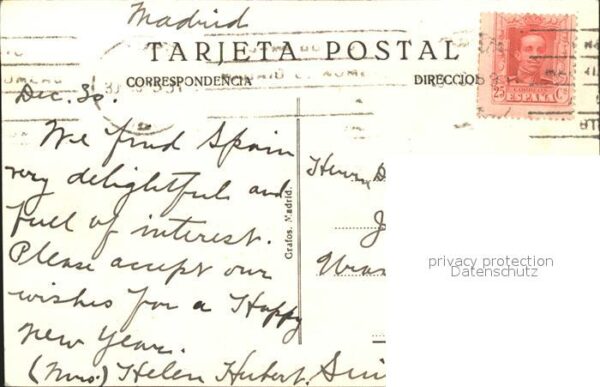 Madrid
TARJETA POSTAL
CORRESPONDENCIA
DIRECCION
Dec. 30.
We find Spain
very delightful and
full of interest.
Please accept our
wishes for a Happy
New Year.
(Mrs.) Helen Hubert
Grafos. Madrid.
Henry D
J
25 CORREOS Cs
ESPAÑA
privacy protection
Datenschutz